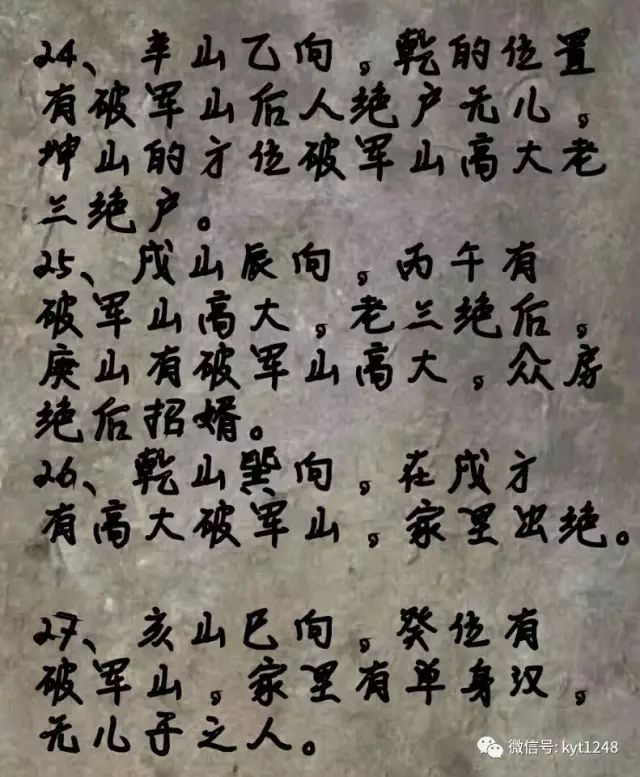 24、辛山乙向，乾的位置
有破军山后人绝户无儿，
坤山的方位破军山高大老
三绝户。
25、戌山辰向，丙午有
破军山高大，老三绝后，
庚山有破军山高大，众房
绝后招婿。
26、乾山巽向，在戌方
有高大破军山，家里出绝。
27、亥山巳向，癸位有
破军山，家里有单身汉，
无儿子之人。
微信号: kyt1248